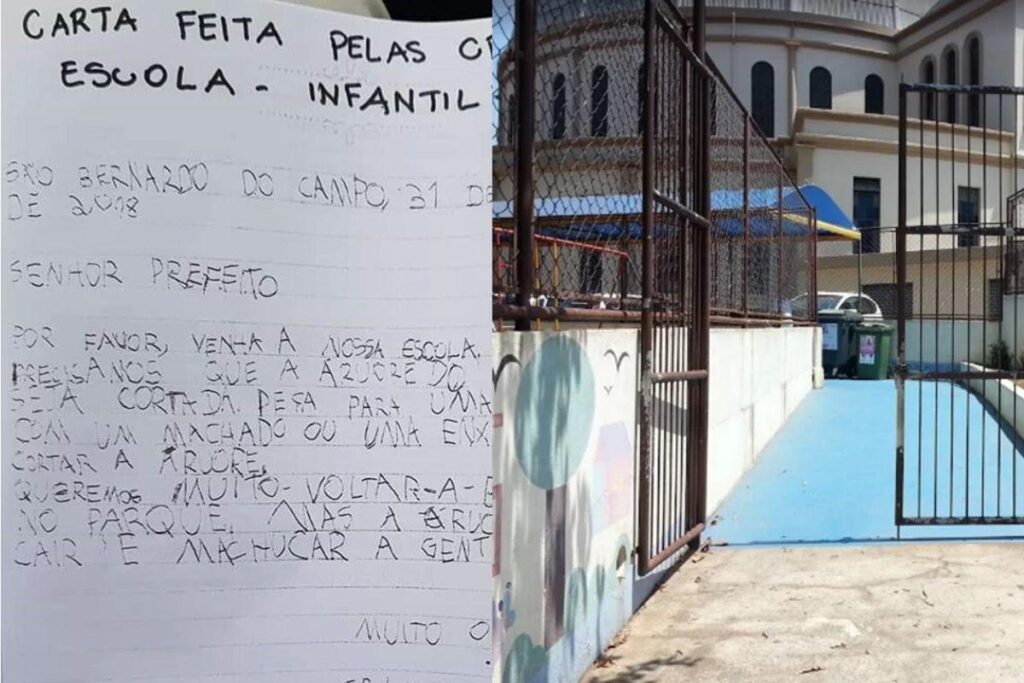 CARTA FEITA PELAS
ESCOLA - INFANTIL
SÃO BERNARDO DO CAMPO, 31 DE
DE 2018
SENHOR PREFEITO
POR FAVOR, VENHA A NOSSA ESCOLA.
PRECISANOS QUE A ÁRUORE DO
SEJA CORTADA. PESA PARA UMA
COM UM MACHADO OU UMA
CORTAR A ÁRUORE.
QUEREMOS MUITO-VOLTAR-A-
NO PARQUE. MAS A
CAIR E MACHUCAR A
MUITO